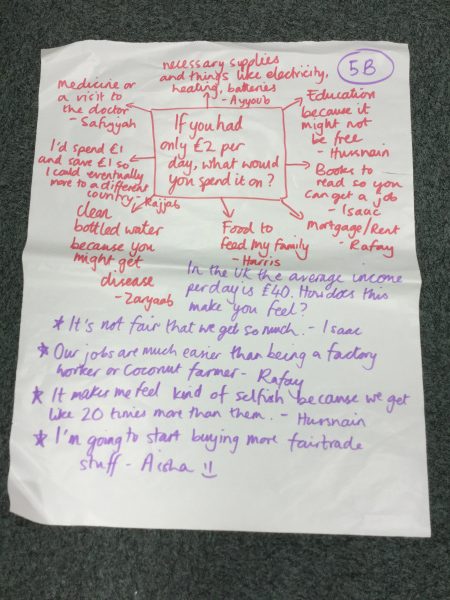 5B
necessary supplies
and things like electricity,
heating, batteries
- Ayyoub
Medicine or
a visit to
the doctor
- Safiyyah
Education
because it
might not
be free
- Husnain
If you had
only £2 per
day, what would
you spend it on?
I'd spend £1
and save £1 so
I could eventually
move to a different
country - Rajjab
Books to
read so you
can get a job
- Isaac
clean
bottled water
because you
might get
disease
- Zaryaab
Food to
feed my family
- Harris
Mortgage/Rent
- Rafay
In the UK the average income
per day is £40. How does this
make you feel?
* It's not fair that we get so much. - Isaac
* Our jobs are much easier than being a factory
worker or coconut farmer - Rafay
* It makes me feel kind of selfish because we get
like 20 times more than them. - Husnain
* I'm going to start buying more fairtrade
stuff - Aisha